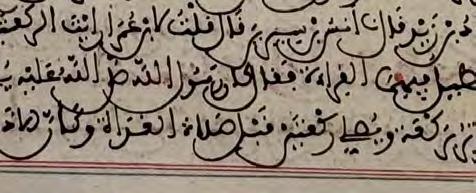 بن زيد قال نا انس بن سيرين قال قلت لابن عمر ارايت الركعتين
نطيل فيهما القراءة فقال كان رسول الله صلى الله عليه
بركعة ويصلي ركعتين قبل صلاة الغداة وكان